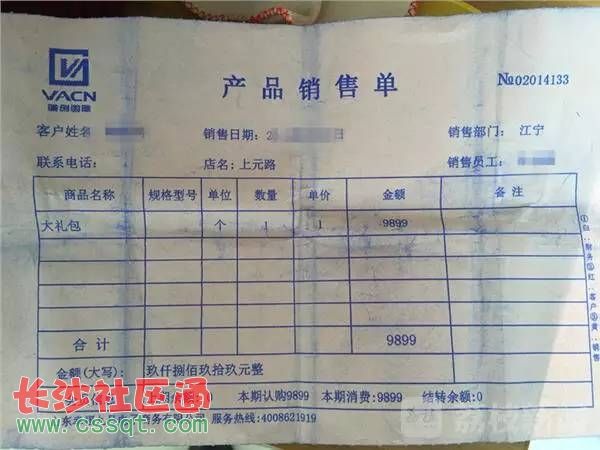 VACN
产品销售单
№02014133
客户姓名
销售日期:2 日
销售部门: 江宁
联系电话:
店名: 上元路
销售员工:
商品名称 规格型号 单位 数量 单价 金额 备注
大礼包 个 1 1 9899
合计 9899
金额(大写): 玖仟捌佰玖拾玖元整
本期认购9899 本期消费:9899 结转余额:0
商务有限公司 服务热线:4008621919
①白:财务②红:客户③黄:销售
长沙社区通
www.cssqt.com